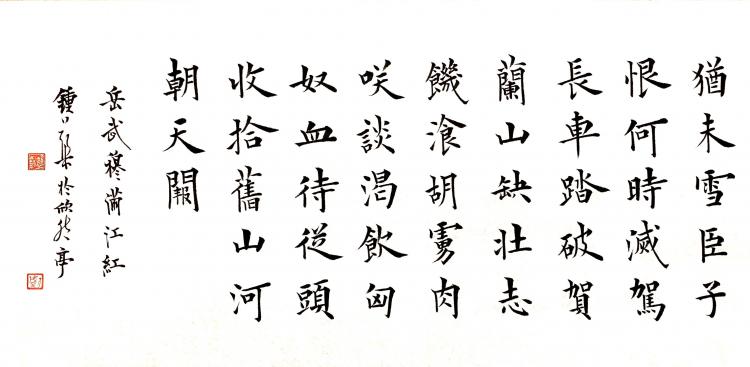 猶未雪臣子
恨何時滅駕
長車踏破賀
蘭山缺壯志
饑湌胡虜肉
咲談渴飲匈
奴血待從頭
收拾舊山河
朝天闕
岳武穆滿江紅
鍾 於欣然亭